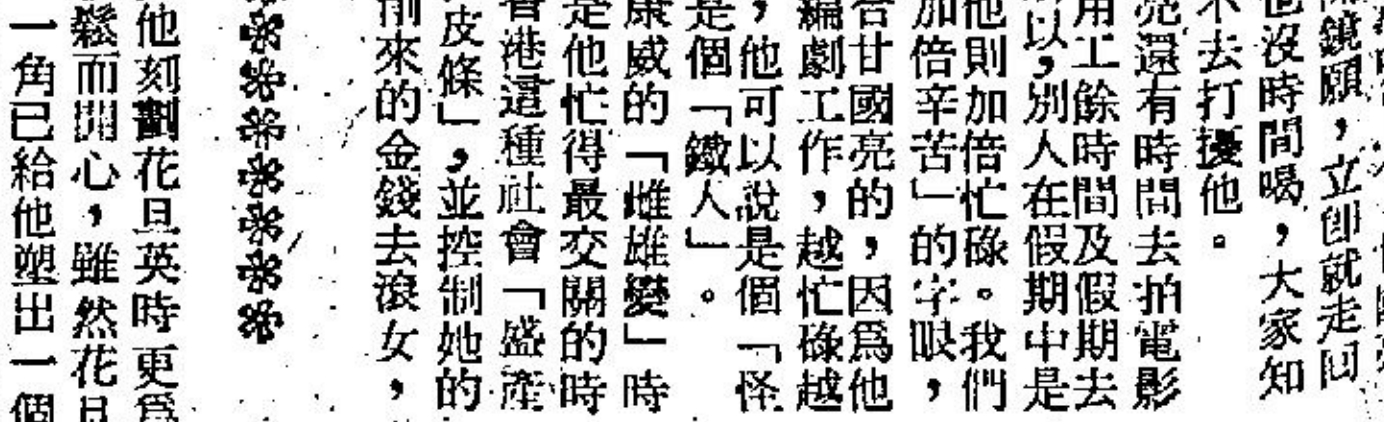 鏡願，立卽就走回
也沒時間喝，大家知
不去打擾他。
亮還有時間去拍電影
用工餘時間及假期去
以，別人在假期中是
他則加倍忙碌。我們
加倍辛苦」的字眼，
合甘國亮的，因爲他
編劇工作，越忙碌越
，他可以說是個「怪
是個「鐵人」。
康威的「雌雄變」時
是他忙得最交關的時
香港這種社會「盛產
皮條」，並控制她的
前來的金錢去滾女，
他刻劃花旦英時更爲
鬆而開心，雖然花旦
一角已給他塑出一個